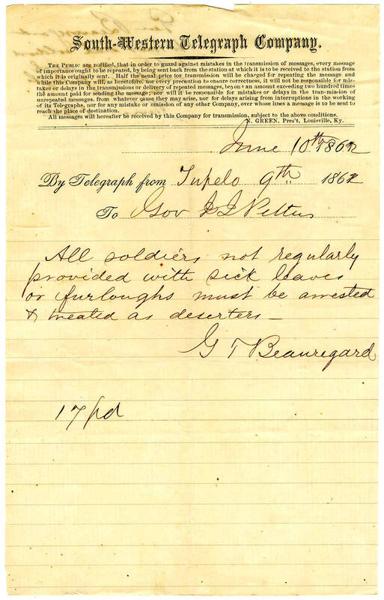 South-Western Telegraph Company.
THE PUBLIC are notified, that in order to guard against mistakes in the transmission of messages, every message
of importance ought to be repeated, by being sent back from the station at which it is to be received to the station from
which it is originally sent. Half the usual price for transmission will be charged for repeating the message and
while this Company will, as heretofore, use every precaution to ensure correctness, it will not be responsible for mis-
takes or delays in the transmission or delivery of repeated messages, beyond an amount exceeding two hundred times
the amount paid for sending the message; nor will it be responsible for mistakes or delays in the transmission of
unrepeated messages, from whatever cause they may arise, nor for delays arising from interruptions in the working
of its Telegraphs, nor for any mistake or omission of any other Company, over whose lines a message is to be sent to
reach the place of destination.
All messages will hereafter be received by this Company for transmission, subject to the above conditions.
N. GREEN, Pres't, Louisville, Ky.
June 10th 1862
By Telegraph from Tupelo 9th 1862
To Gov J J Pettus
All soldiers not regularly
provided with sick leaves
or furloughs must be arrested
& treated as deserters—
G T Beauregard
17 pd